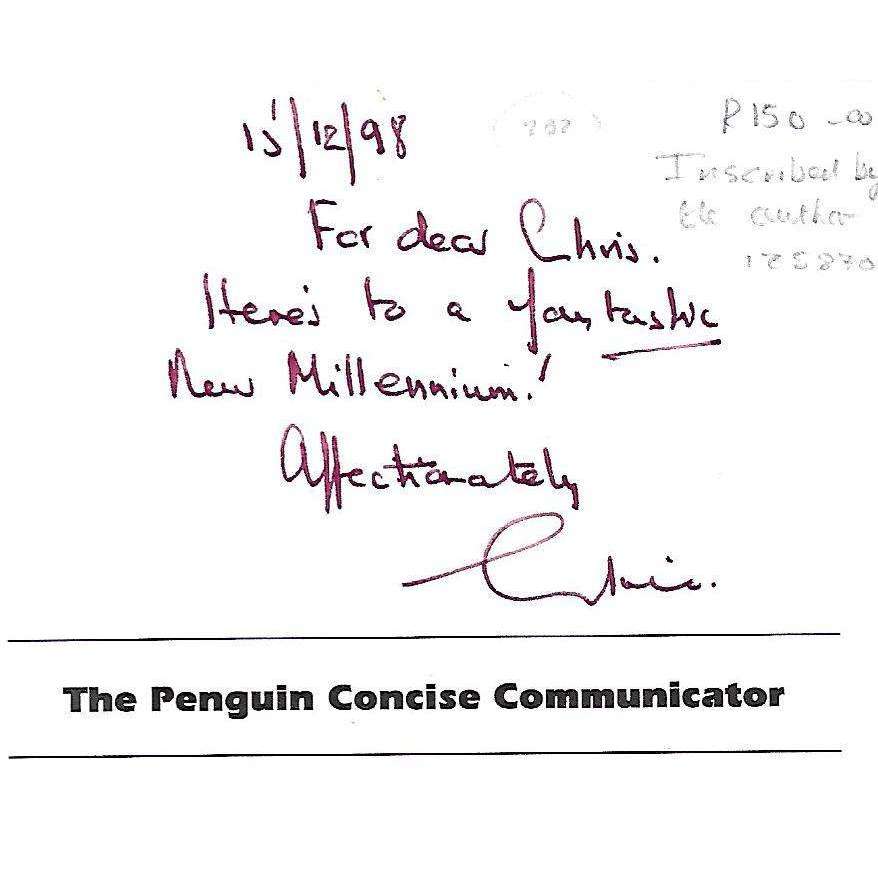 15/12/98
For dear Chris.
Here's to a fantastic
New Millennium!
Affectionately
R150-00
Inscribed by
the author
The Penguin Concise Communicator